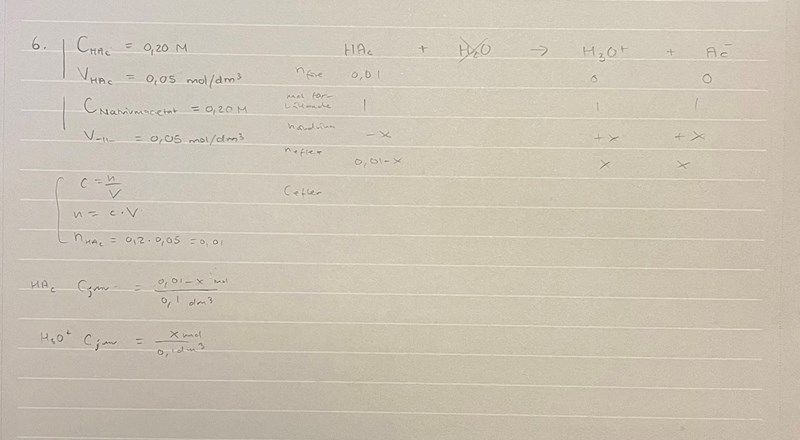 6. C_HAc = 0,20 M
V_HAc = 0,05 mol/dm³
C_Natriumacetat = 0,20 M
V_-11- = 0,05 mol/dm³
HAc + H₂O → H₃O⁺ + Ac⁻
n_före 0,01 0 0
mol för- 1 1 1
-x +x +x
n_efter 0,01-x x x
C_efter
c = n/V
n = c·V
n_HAc = 0,2·0,05 = 0,01
HAc C_jmv = 0,01-x mol / 0,1 dm³
H₃O⁺ C_jmv = x mol / 0,1 dm³